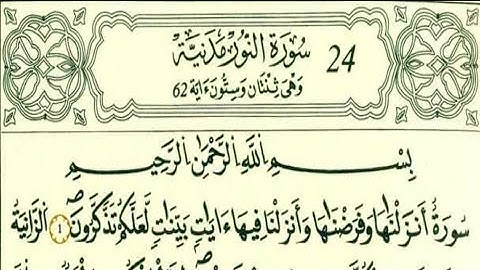 24 سُورَةُ النُّورِ مَدَنِيَّة
وَهْيَ ثِنْتَانِ وَسِتُّونَ ءَايَة 62
بِسْمِ اللَّهِ الرَّحْمَٰنِ الرَّحِيمِ
سُورَةٌ أَنزَلْنَٰهَا وَفَرَضْنَٰهَا وَأَنزَلْنَا فِيهَا ءَايَٰتٍ بَيِّنَٰتٍ لَّعَلَّكُمْ تَذَّكَّرُونَۖ 1 الزَّانِيَةُ